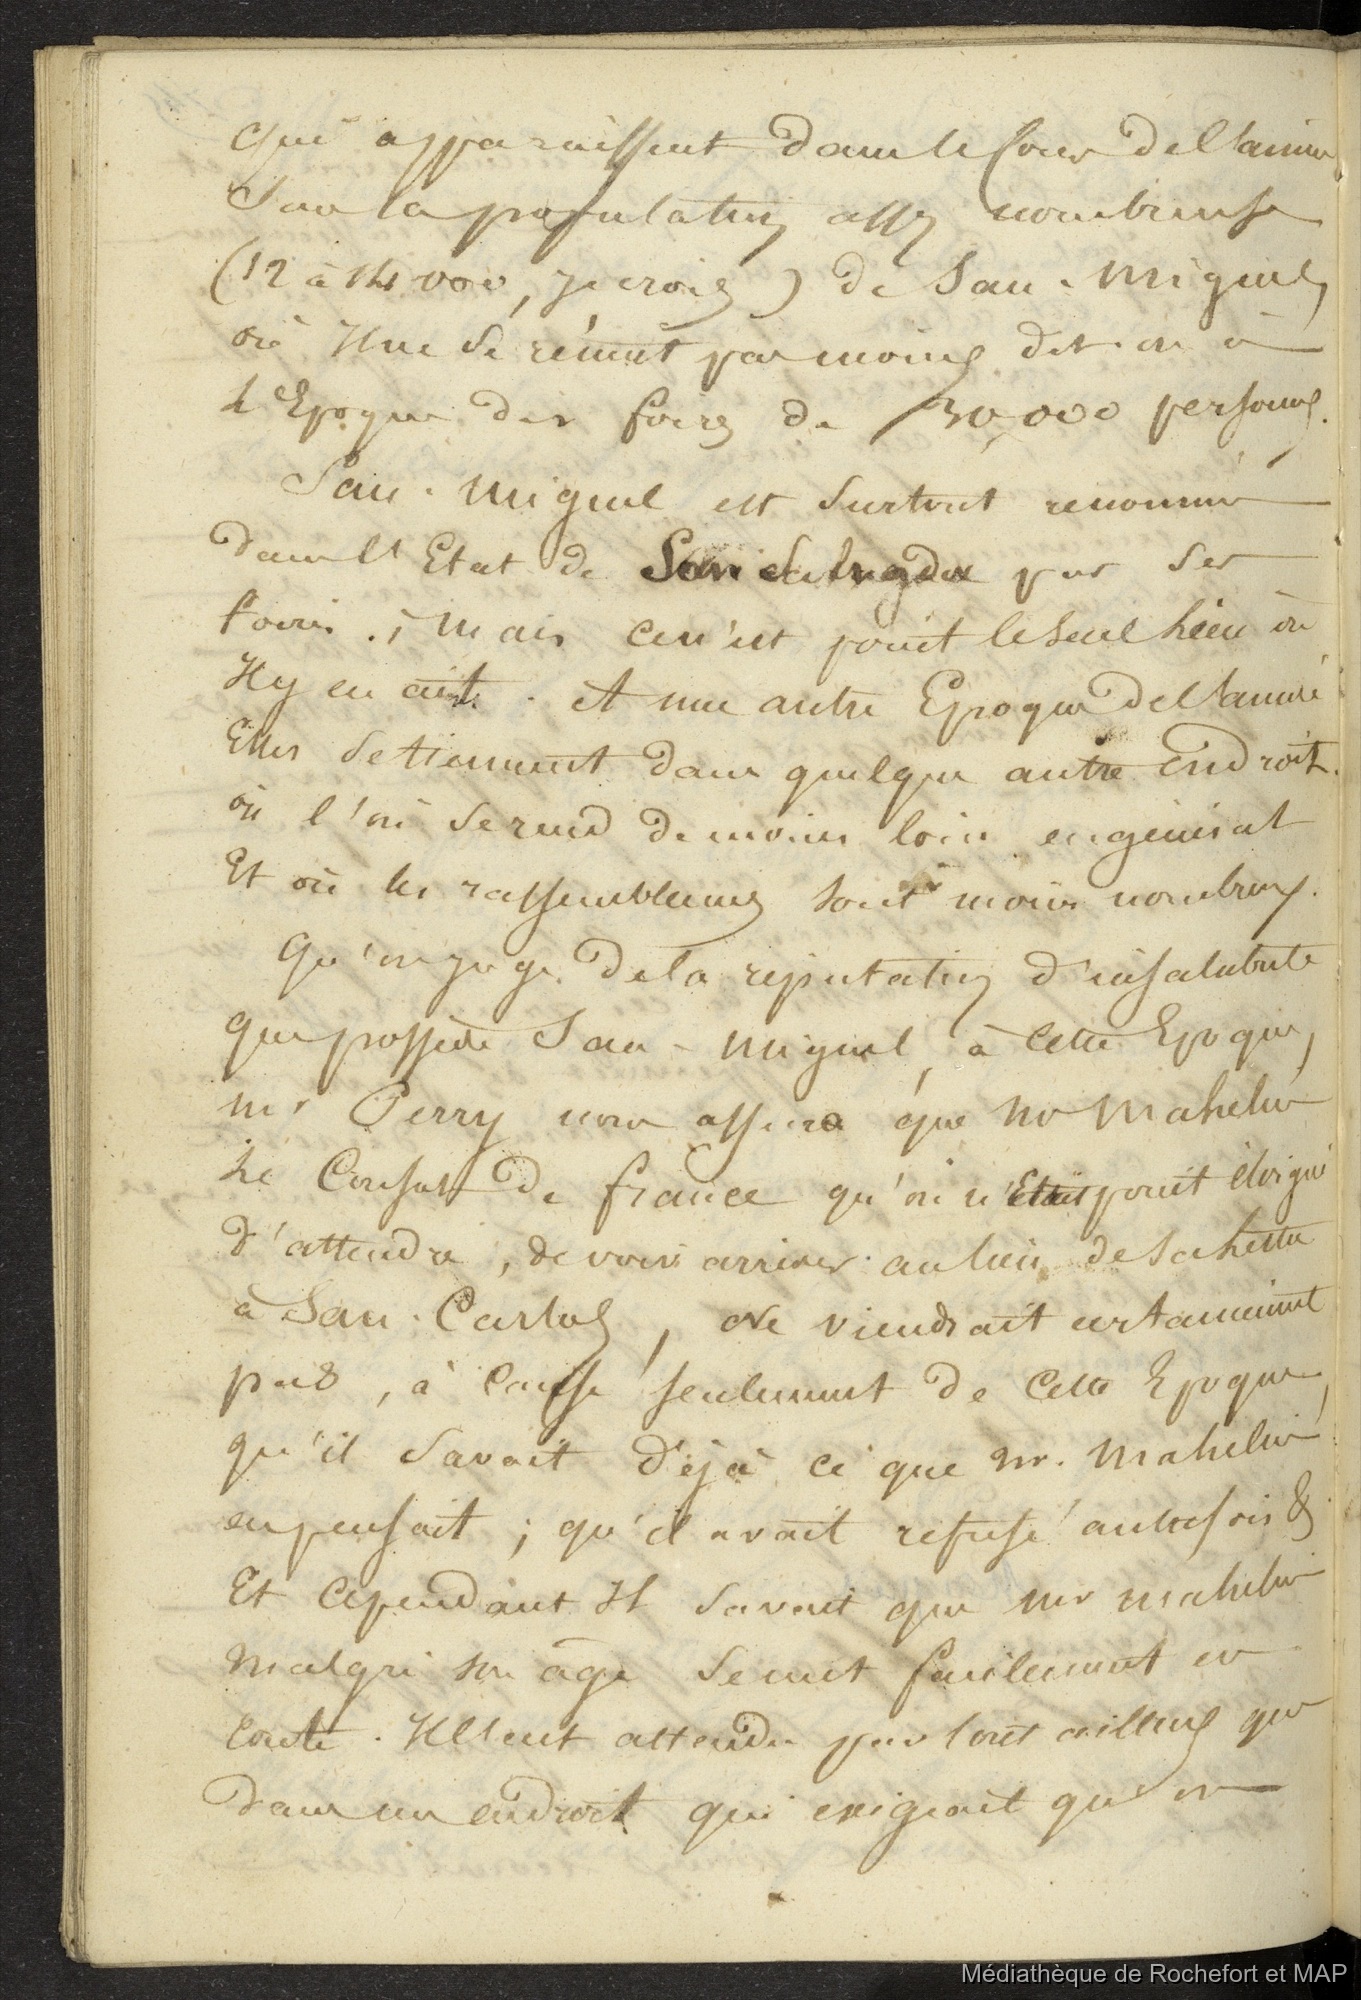 qui apparaissent dans le cour de l'année
sur la population assez nombreuse
(12 à 14 000, je crois) de San-Miguel,
où Il ne se réunit pas moins dit-on à
L'Epoque des foires de 30,000 personnes.
San-Miguel est surtout renommé
dans l'Etat de San Salvador par ses
foires ; mais ce n'est point le seul lieu où
Il y en ait. A une autre Epoque de l'année
Elles se tiennent dans quelque autre endroit
où l'on se rend de moins loin en général
Et où les rassemblements sont moins nombreux.
Qu'on juge de la réputation d'insalubrité
que possède San-Miguel, à cette Epoque,
Mr Perry nous assura que Mr Mahelin
Le Consul de france qu'on n'était point éloigné
d'attendre, de voir arriver au lieu de sa lettre
à San-Carlos, Ne viendrait certainement
pas, à cause seulement de cette Epoque,
qu'il savait déjà ce que Mr. Mahelin
en pensait ; qu'il avait refusé autrefois &
Et cependant Il savait que Mr Mahelin
malgré son âge se met facilement en
route. Il l'eut attendu partout ailleurs que
dans un endroit qui exigeait qu'on
Médiathèque de Rochefort et MAP